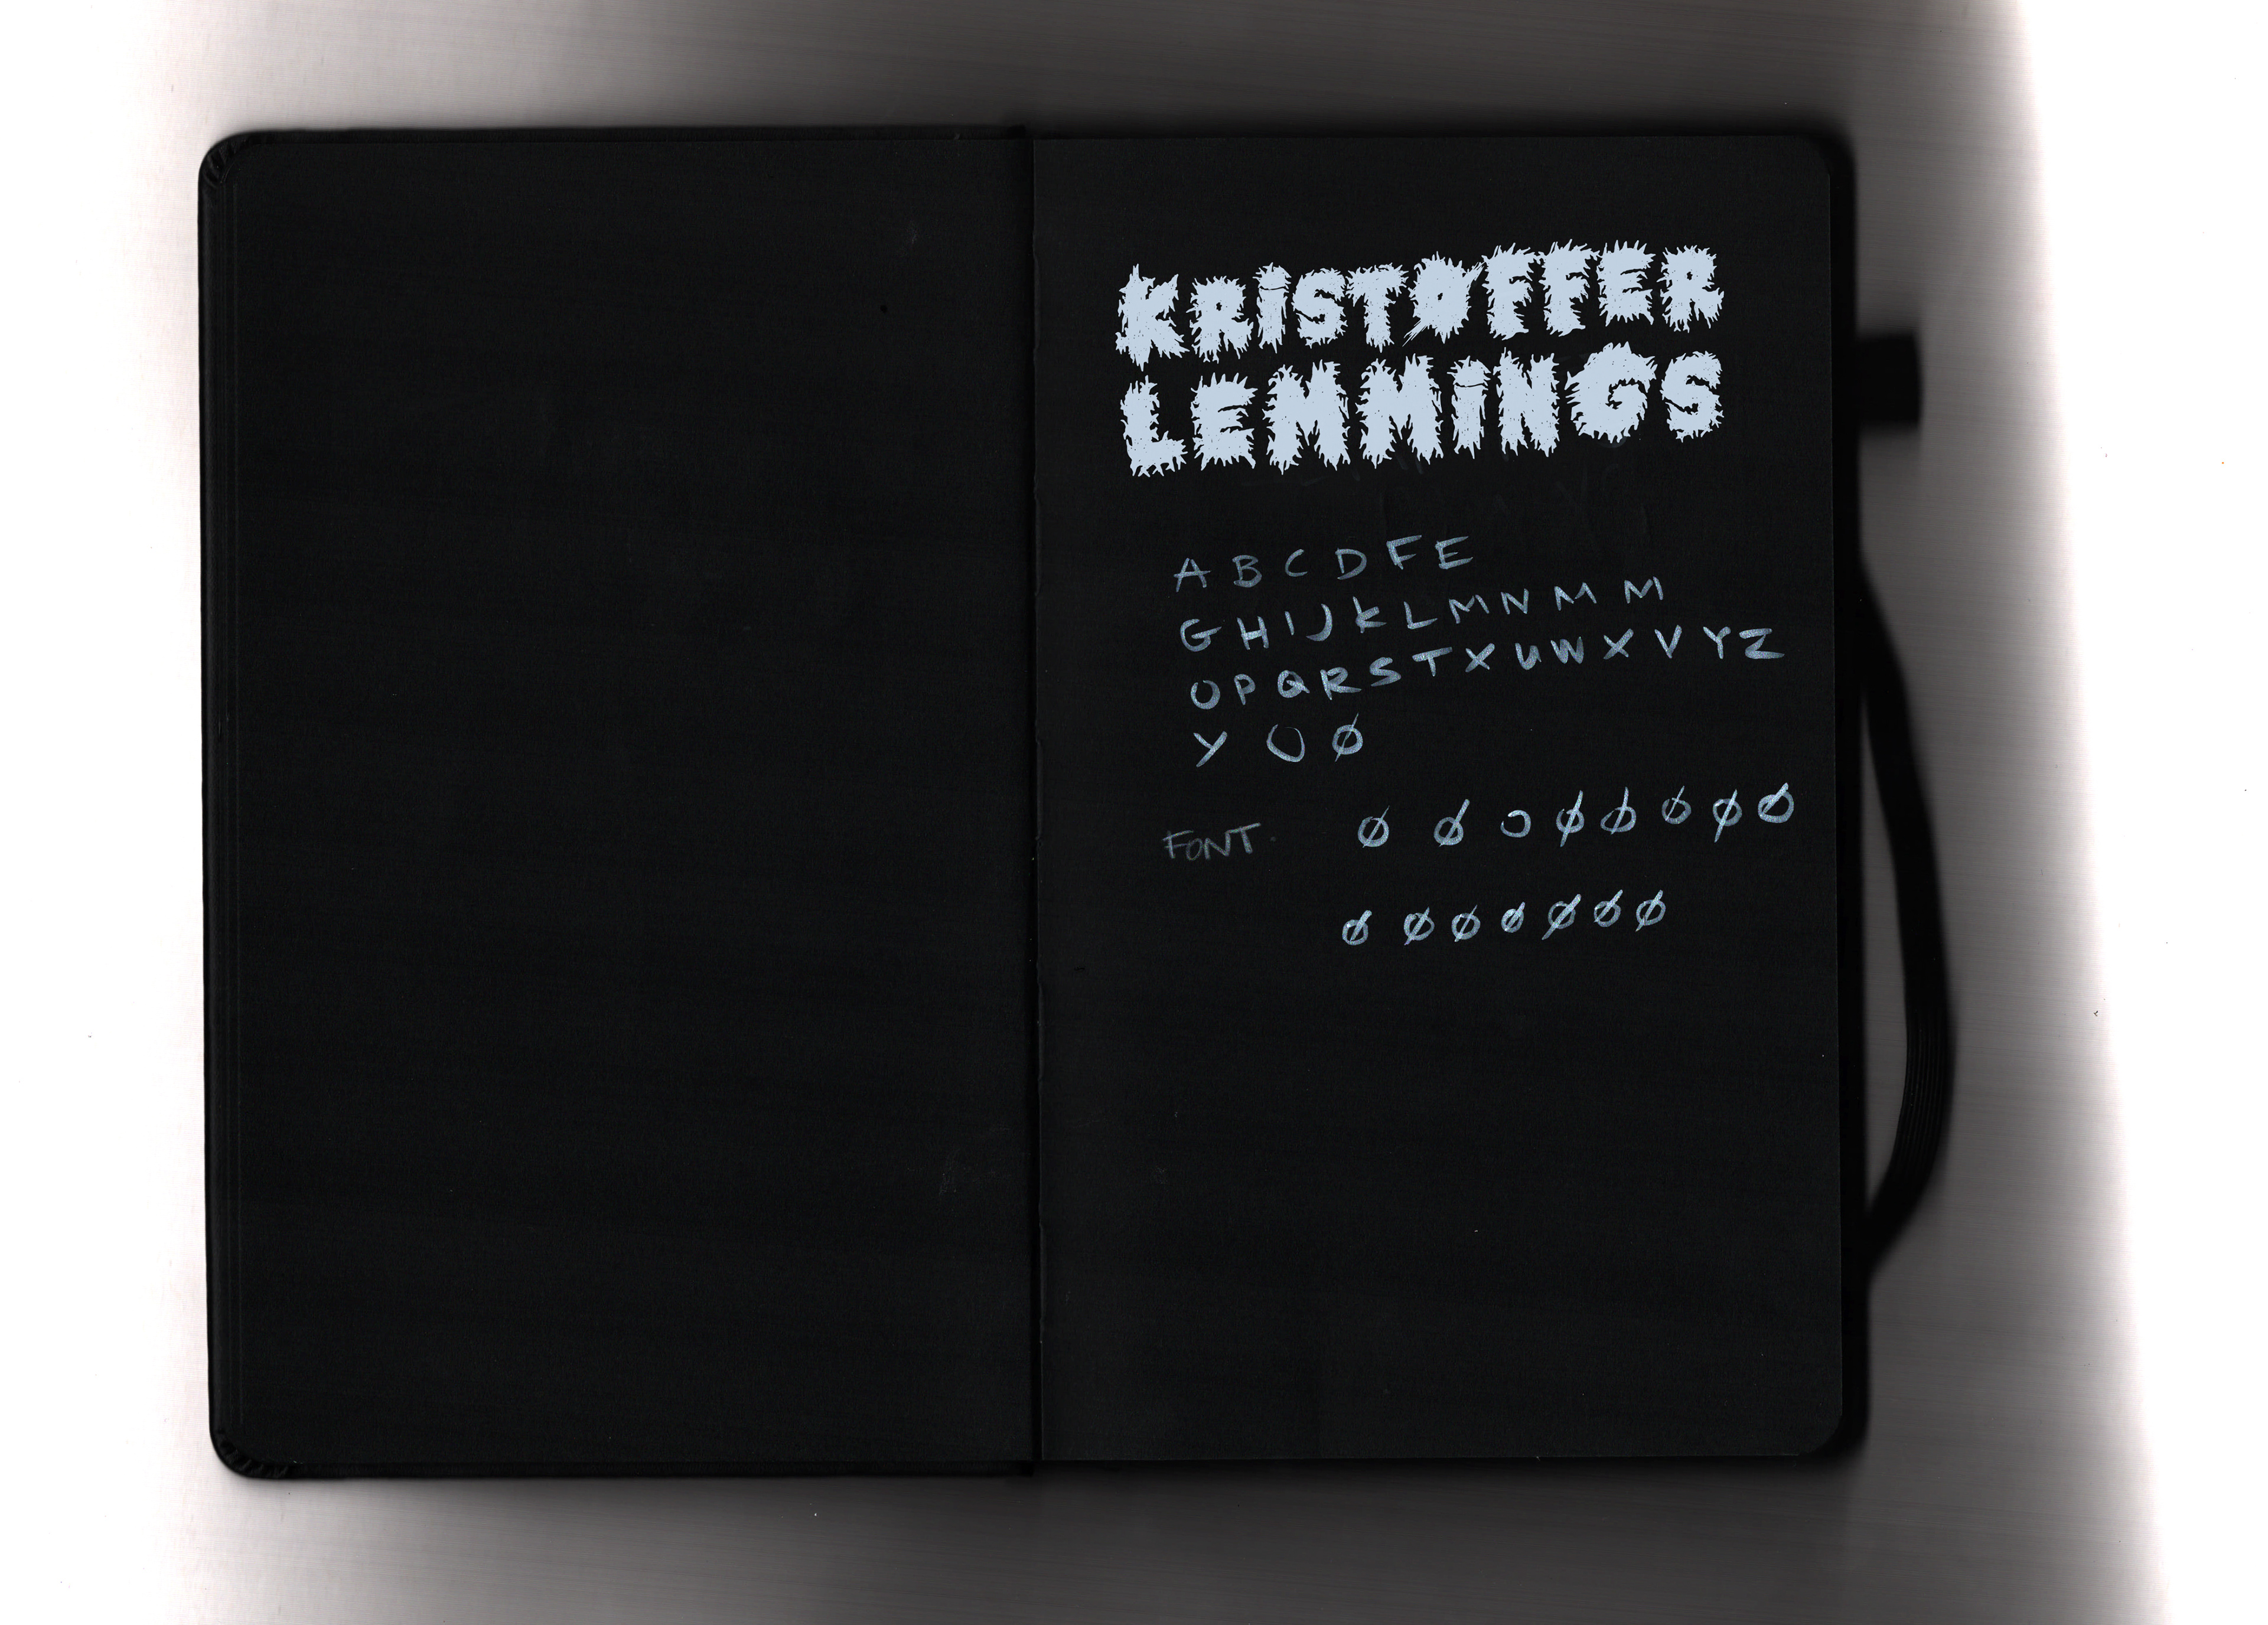 KRISTØFFER
LEMMINGS
A B C D F E
G H I J K L M N M M
O P Q R S T X U W X V Y Z
Y O Ø
FONT. Ø Ø O Ø Ø Ø Ø Ø
Ø Ø Ø Ø Ø Ø Ø